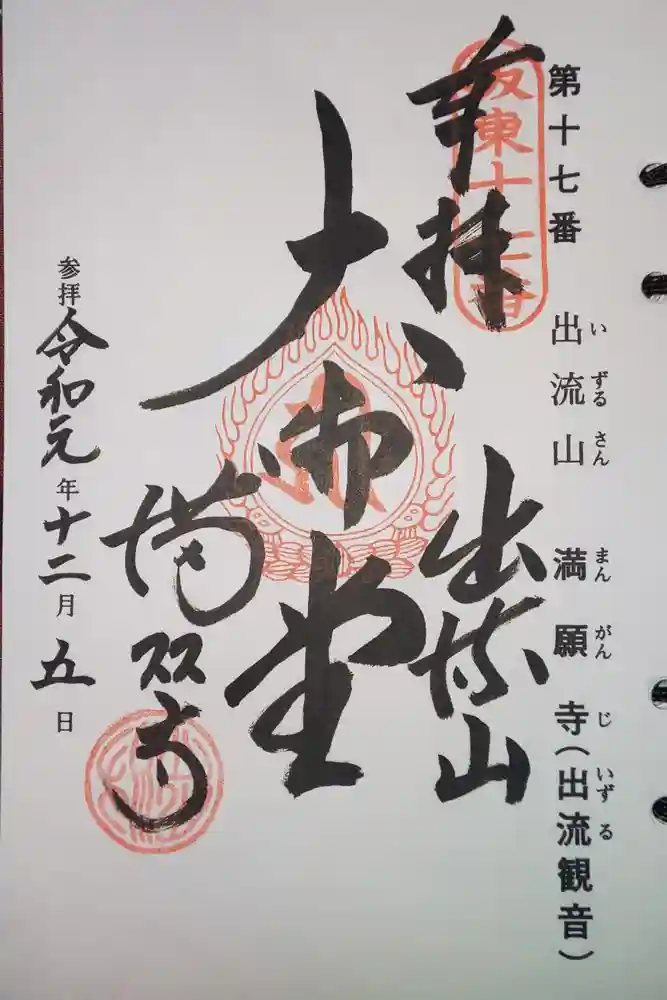 第十七番 出流山 満願寺(出流観音)
いずるさん まんがんじ いずる
坂東十七番
奉拝 出流山
大御堂
満願寺
参拝 令和元年十二月五日